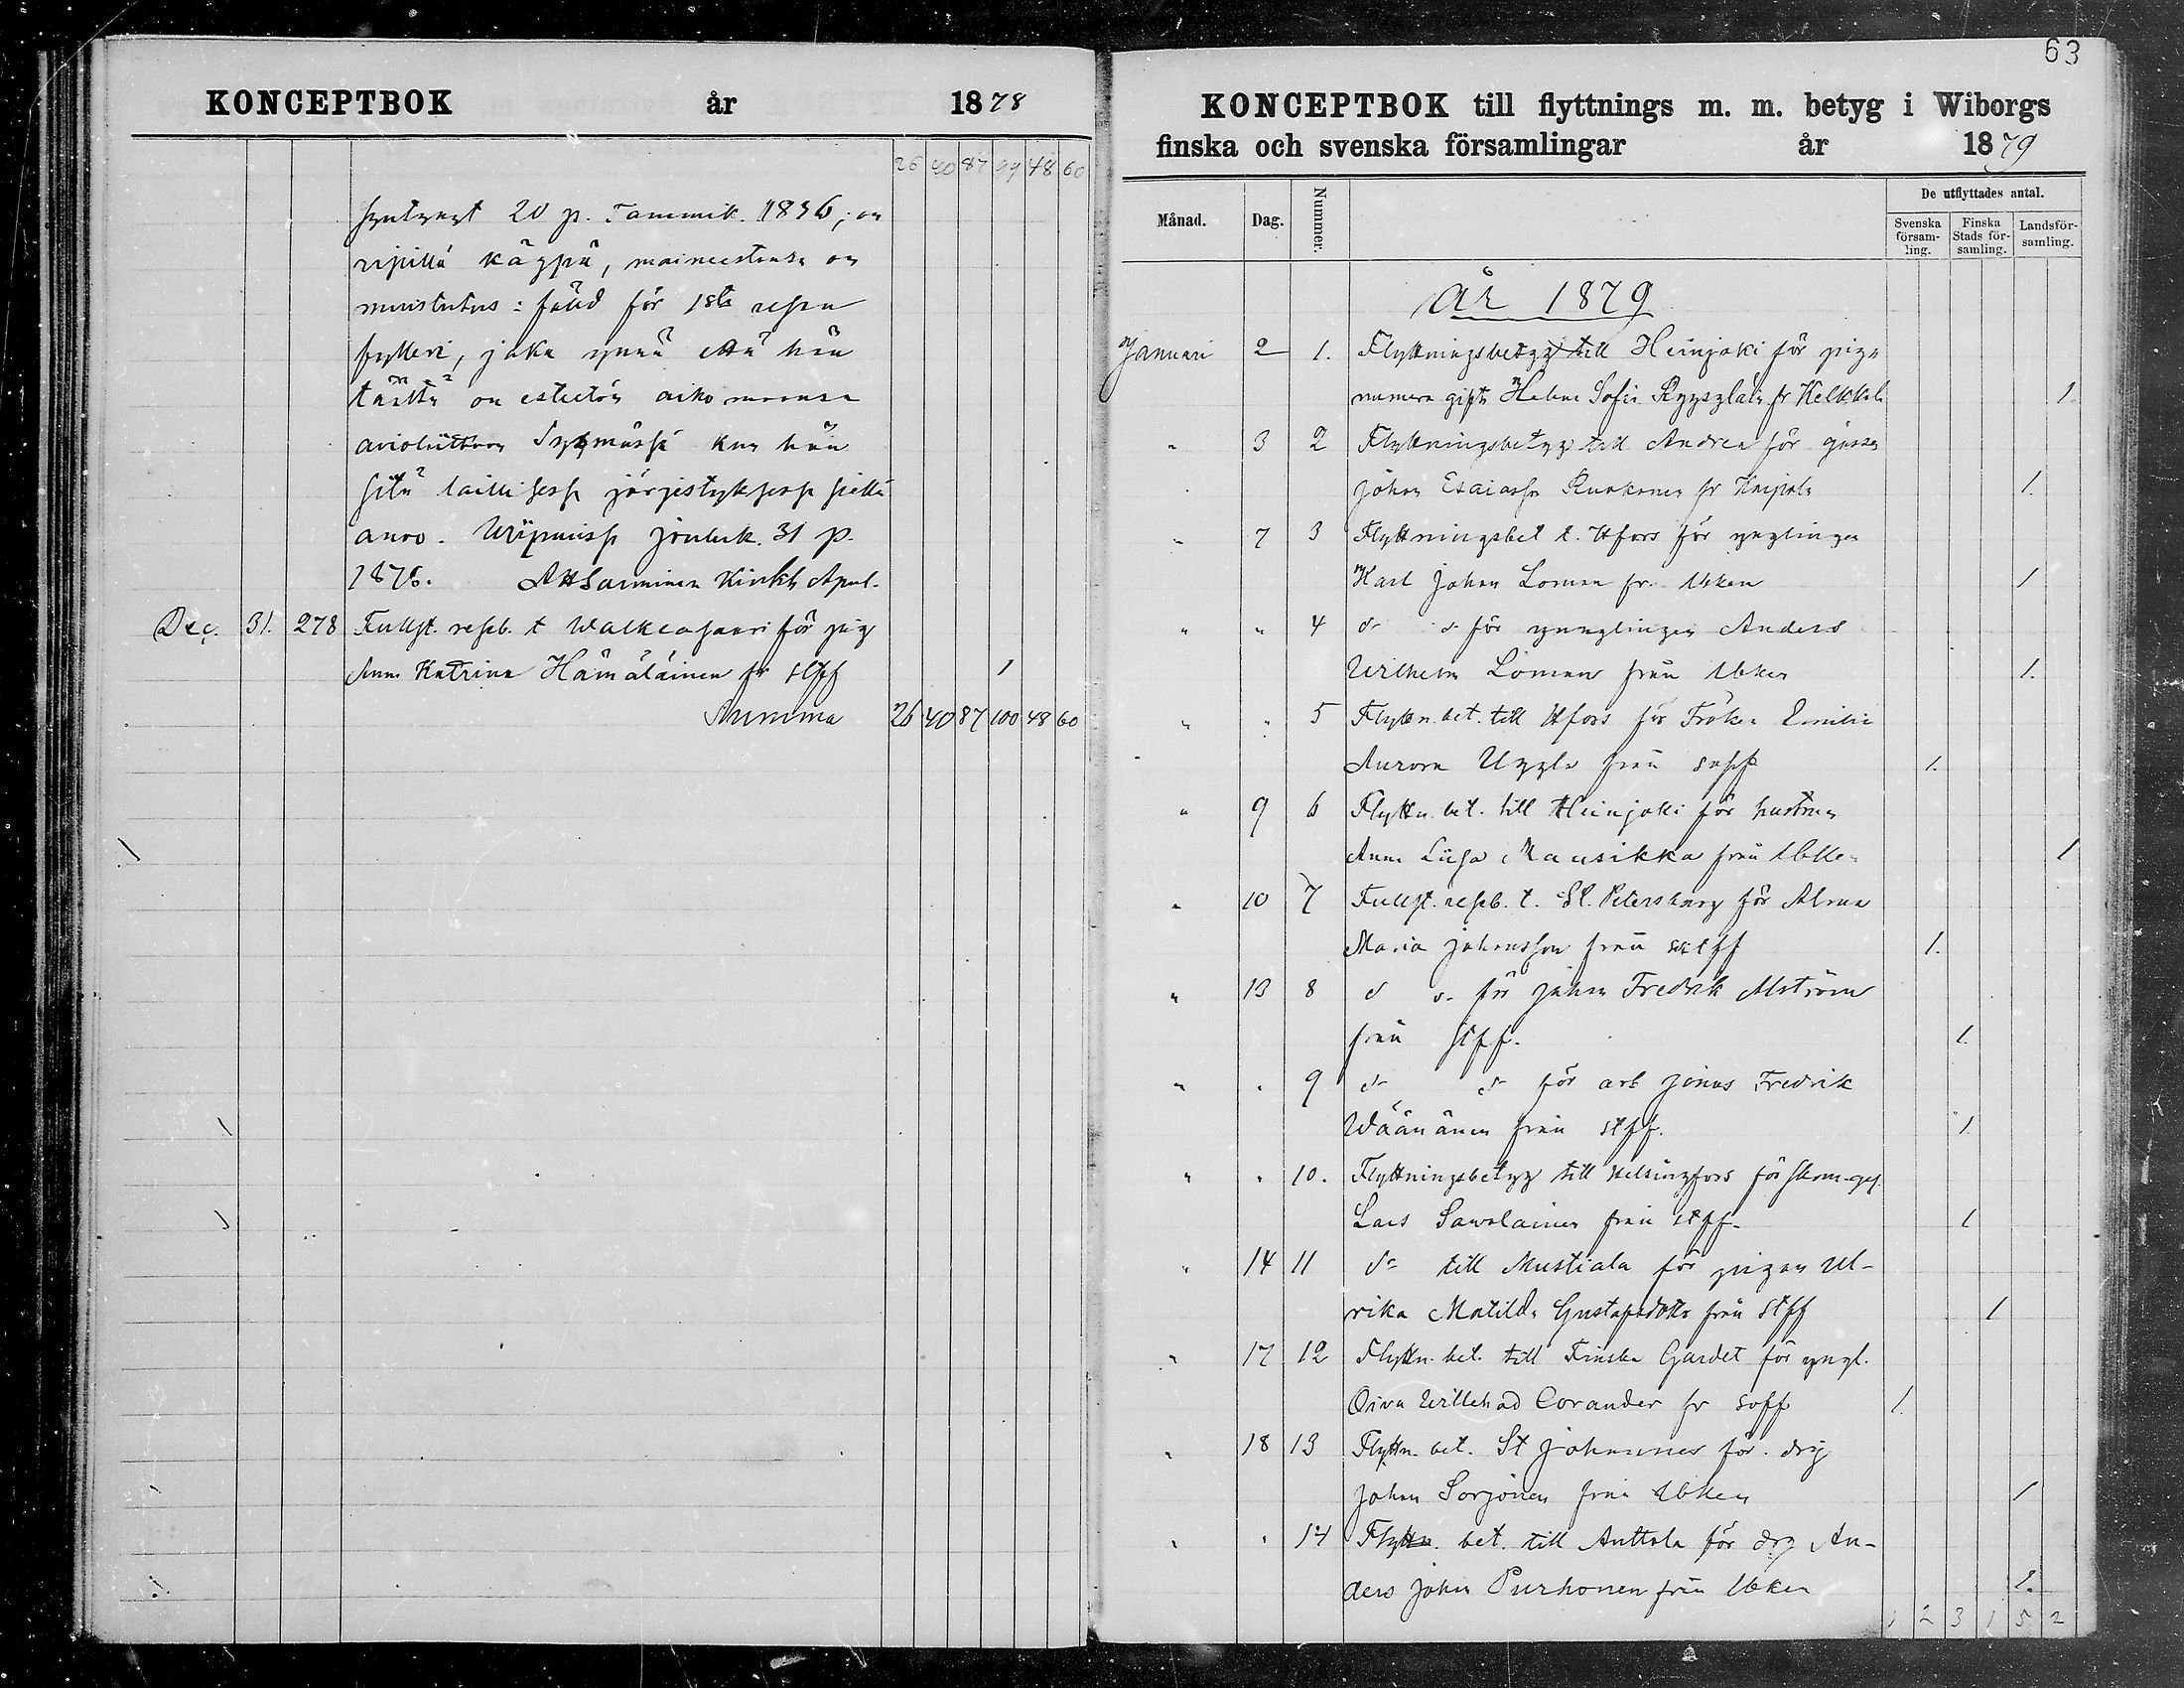 KONCEPTBOK år 1878
26 40 87 99 48 60
syntynyt 20 p. Tammik. 1856; on
ripillä käypä, maineestansa on
muistutus: fäld för 1sta resan
fylleri, joka ynnä että hän
täältä on esteetön aikomaansa
avioliittoon kun hän
sitä laillisessa järjestyksessä siellä
anoo. Wiipurissa jouluk. 31 p.
1878. Kirkkoh. Apul.
Dec. 31. 278 Fullst. resb. t Walkeasaari för pig
Anna Katrina Hämäläinen fr stff 1
Summa 26 40 87 100 48 60
63
KONCEPTBOK till flyttnings m. m. betyg i Wiborgs
finska och svenska församlingar år 1879
Månad. Dag. Nummer. De utflyttades antal.
Svenska församling. Finska Stads församling. Landsförsamling.
År 1879
Januari 2 1. Flyttningsbetyg till Heinjoki för piga
numera gifta Helena Sofia fr Kelkkala 1.
" 3 2 Flyttningsbetyg till Andrea för gossen
Johan Esaiasson Ruokonen fr Kaipola 1.
" 7 3 Flyttningsbet t. Hfors för ynglingen
Karl Johan Loman fr. Ubken 1
" " 4 do do för ynglingen Anders
Wilhelm Loman från Ubken 1.
" " 5 Flyttn. bet. till Hfors för Fröken Emilia
Aurora Uggla från soff 1.
" 9 6 Flyttn. bet. till Heinjoki för hustrun
Anna Liisa Mansikka från Ubken 1
" 10 7 Fullst. resb. t. St. Petersburg för Alma
Maria Johansson från 1.
" 13 8 do do för Johan Fredrik Alström
från stff. 1
" " 9 do do för arb Jonas Fredrik
Wäänänen från stff. 1
" " 10. Flyttningsbetyg till Helsingfors för skom-ges.
Lars Sawolainen från stff. 1
" 14 11 do till Mustiala för pigan Ul-
rika Matilda Gustafsdotter från stff 1
" 17 12 Flyttn. bet. till Finska Gardet för yngl.
Oiva Willehad Corander fr soff 1.
" 18 13 Flyttn. bet. St Johannes för drg
Johan Sorjonen från Ubken 1
" " 14 Flyttn. bet. till Anttola för drg An-
ders Johan Purhonen från Ubken 1.
1 2 3 1 5 2